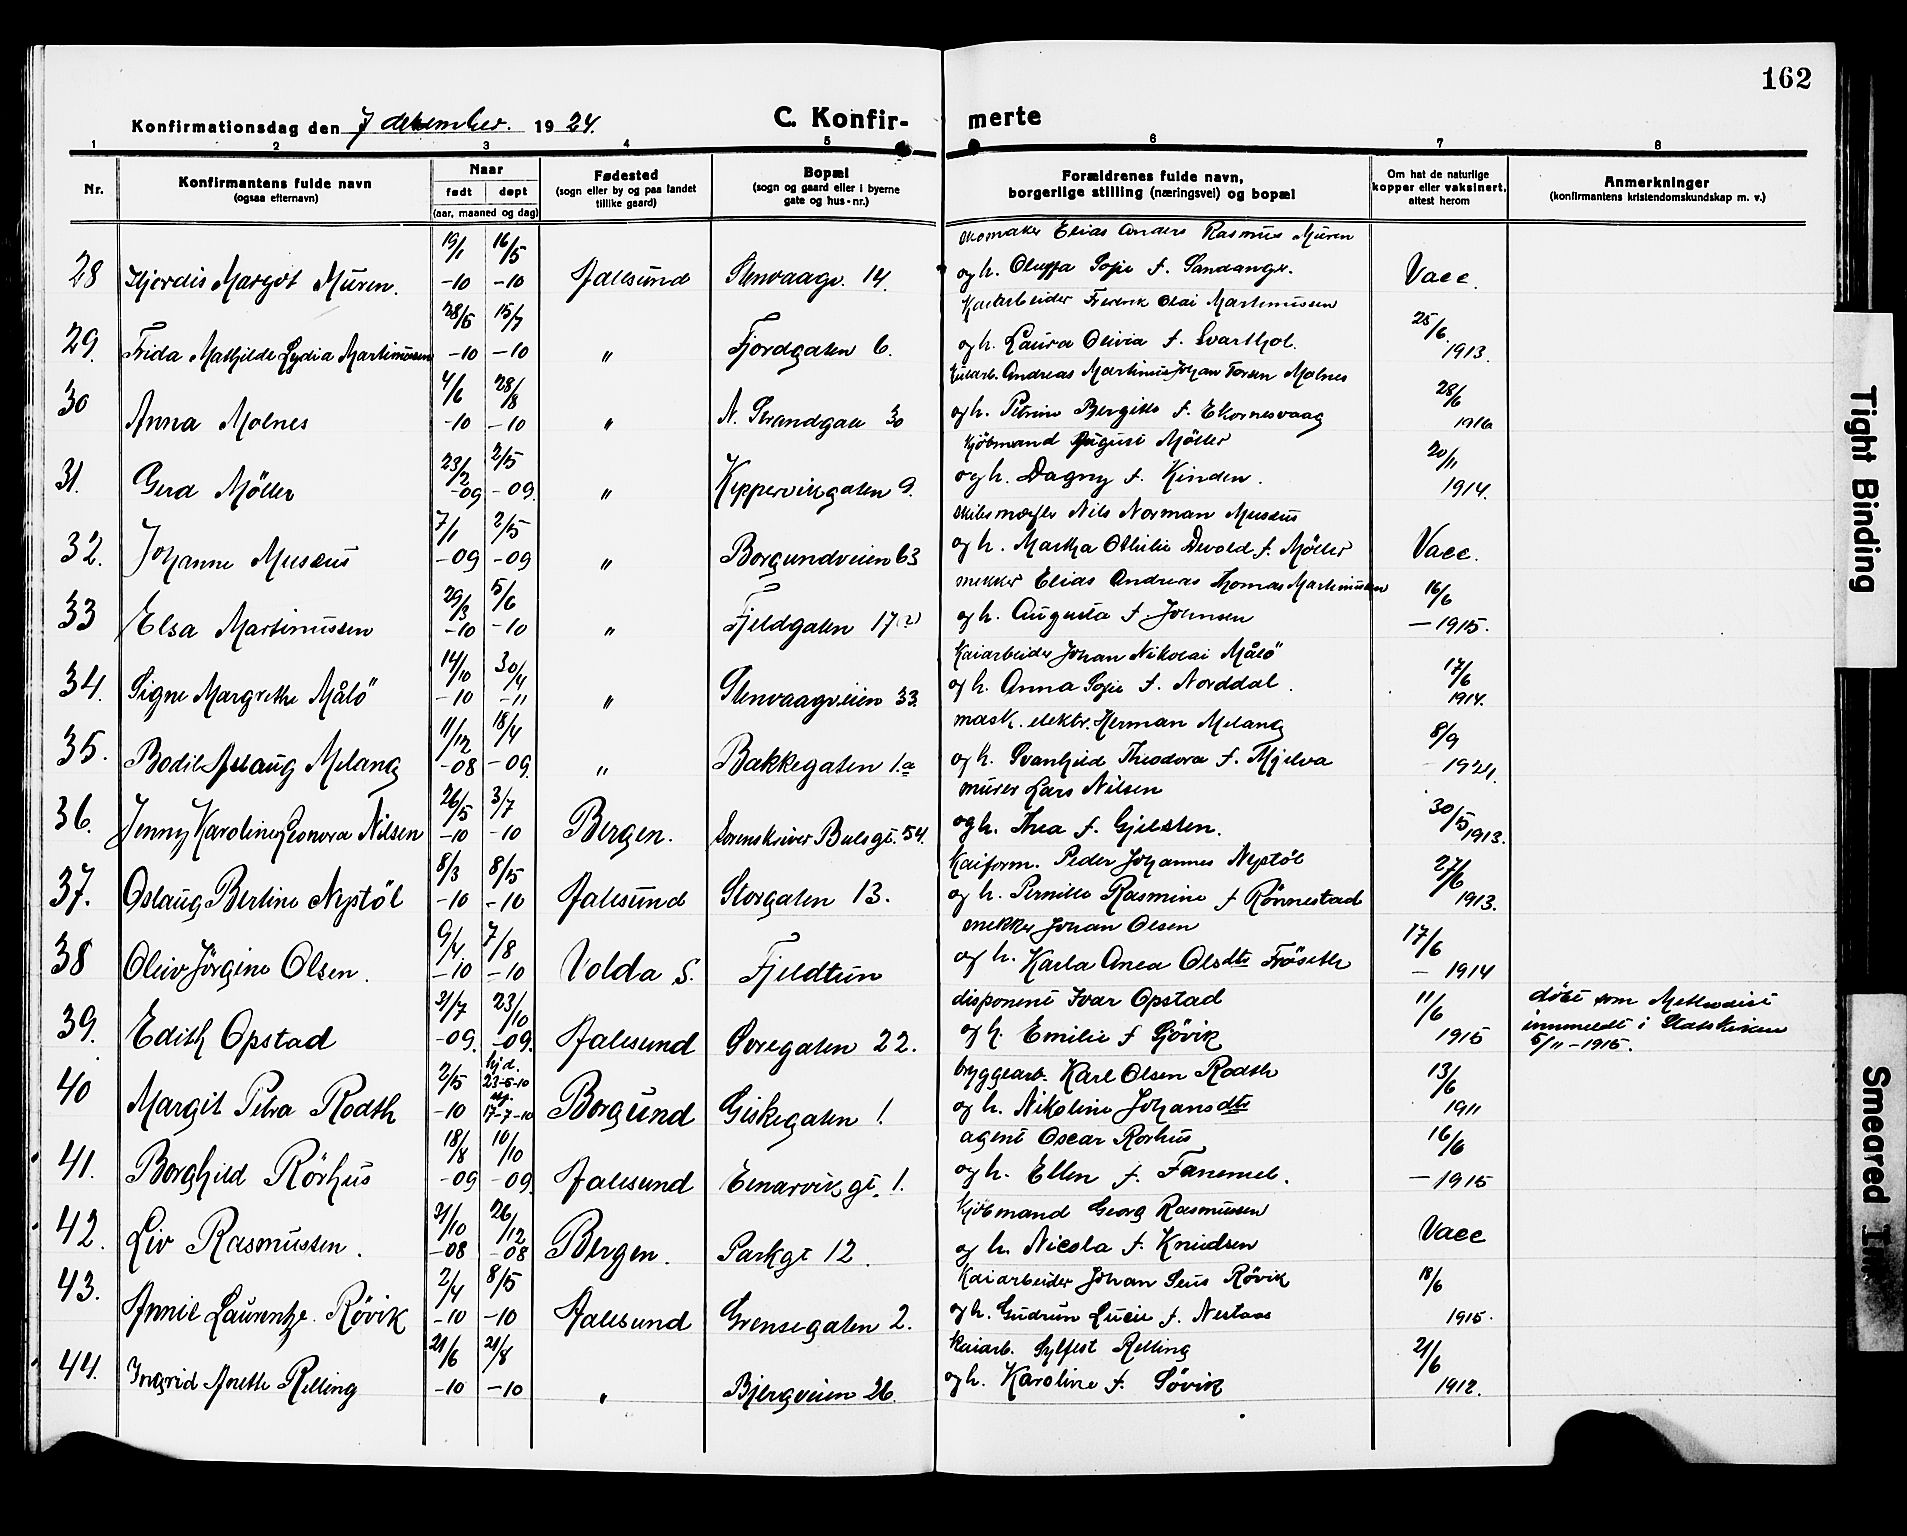 162
Konfirmationsdag den 7 desember. 1924.
C. Konfir- merte
1 2 3 4 5 6 7 8
Nr.
Konfirmantens fulde navn
(ogsaa efternavn)
Naar
født døpt
(aar, maaned og dag)
Fødested
(sogn eller by og paa landet
tillike gaard)
Bopæl
(sogn og gaard eller i byerne
gate og hus-nr.)
Forældrenes fulde navn,
borgerlige stilling (næringsvei) og bopæl
Om hat de naturlige
kopper eller vaksinert,
attest herom
Anmerkninger
(konfirmantens kristendomskundskap m. v.)
19/1 16/5 skomaker Elias Anders Rasmus Muren
28 Hjørdis Margot Muren. -10 -10 Aalesund Stenvaagv. 14. og h. Oluffa Sofie f. Sandanger. Vacc.
28/5 15/7 Kaiarbeider Frederik Olai Martinussen 25/6
29. Frida Mathilde Lydia Martinussen -10 -10 " Fjordgaten 6. og h. Laura Olivia f. Svarthol. 1913.
4/6 28/8 Andreas Martinus Johan Torsen Molnes 28/6
30 Anna Molnes -10 -10 " N. Strandgate 30 og h. Petrine Bergitte f. Ekornesvaag 1916
23/2 2/5 Kjøbmand August Möller 20/11
31. Gerd Möller -09 -09. " Kippervikgaten 9. og h. Dagny f. Kinden. 1914.
7/1 2/5 skibsmægler Nils Norman Musæus
32. Johanne Musæus -09 -09 " Borgundveien 63 og h. Martha Othilie Devold f. Möller Vacc.
29/3 5/6 snekker Elias Andreas Thomas Martinussen 16/6
33 Elsa Martinussen -10 -10 " Fjeldgaten 17(2) og h. Augusta f. Johnsen -1915.
14/10 30/4 Kaiarbeider Johan Nikolai Målö 17/6
34. Signe Margrethe Målö -10 -11 " Stenvaagveien 33. og h. Anna Sofie f. Norddal. 1914.
11/12 18/4 mask. elektr. Herman Melang 8/9
35. Bodil Aslaug Melang -08 -09. " Bakkegaten 1.a og h. Svanhild Theodora f. Mjelva 1921.
26/5 3/7 murer Lars Nilsen 30/5
36. Jenny Karoline Leonora Nilsen -10 -10 Bergen. Sorenskriver Bulsgt. 54. og h. Thea f. Gjelsten. 1913.
8/3 8/5 Kaiform. Peder Johannes Nystöl 27/6
37. Oslaug Bertine Nystöl -10 -10 Aalesund Storgaten 13. og h. Pernille Rasmine f Rönnestad 1913.
9/4 7/8 snekker Johan Olsen 17/6
38 Oliv Jörgine Olsen. -10 -10 Volda S. Fjeldtun og h. Karla Anea Olsdtr Fröseth - 1914
21/7 23/10 disponent Ivar Opstad 11/6 döbt som Methodist
39. Edith Opstad -09. -09. Aalesund Storegaten 22. og h. Emilie f Gjövik 1915 innmeldt i Statskirken
5/11-1915.
2/5 hj.d. 23-5-10 bryggearb. Karl Olsen Rodth 13/6
40 Margit Petra Rodth -10 17-7-10 Borgund Giskegaten 1. og h. Nikoline Johansdtr 1911
18/8 10/10 agent Oscar Rørhus 16/6
41. Borghild Rörhus -09 -09. Aalesund Einarvikgt. 1. og h. Ellen f. Fanemel. -1915
31/10 26/12 Kjöbmand Georg Rasmussen
42. Liv Rasmussen. -08 -08 Bergen. Parkgt 12. og h. Nicola f. Knudsen Vacc
2/4 8/5 Kaiarbeider Johan Seus Rövik 18/6
43. Annie Laurentze Rövik -10 -10 Aalesund Grensegaten 2. og h. Gudrun Lucie f. Nestaas 1915.
21/6 21/8 Kaiarb. Sylfest Relling 21/6
44. Ingrid Anette Relling -10 -10 " Bjergveien 26. og h. Karoline f. Sövik 1912.
Tight Binding
Smeared Ink